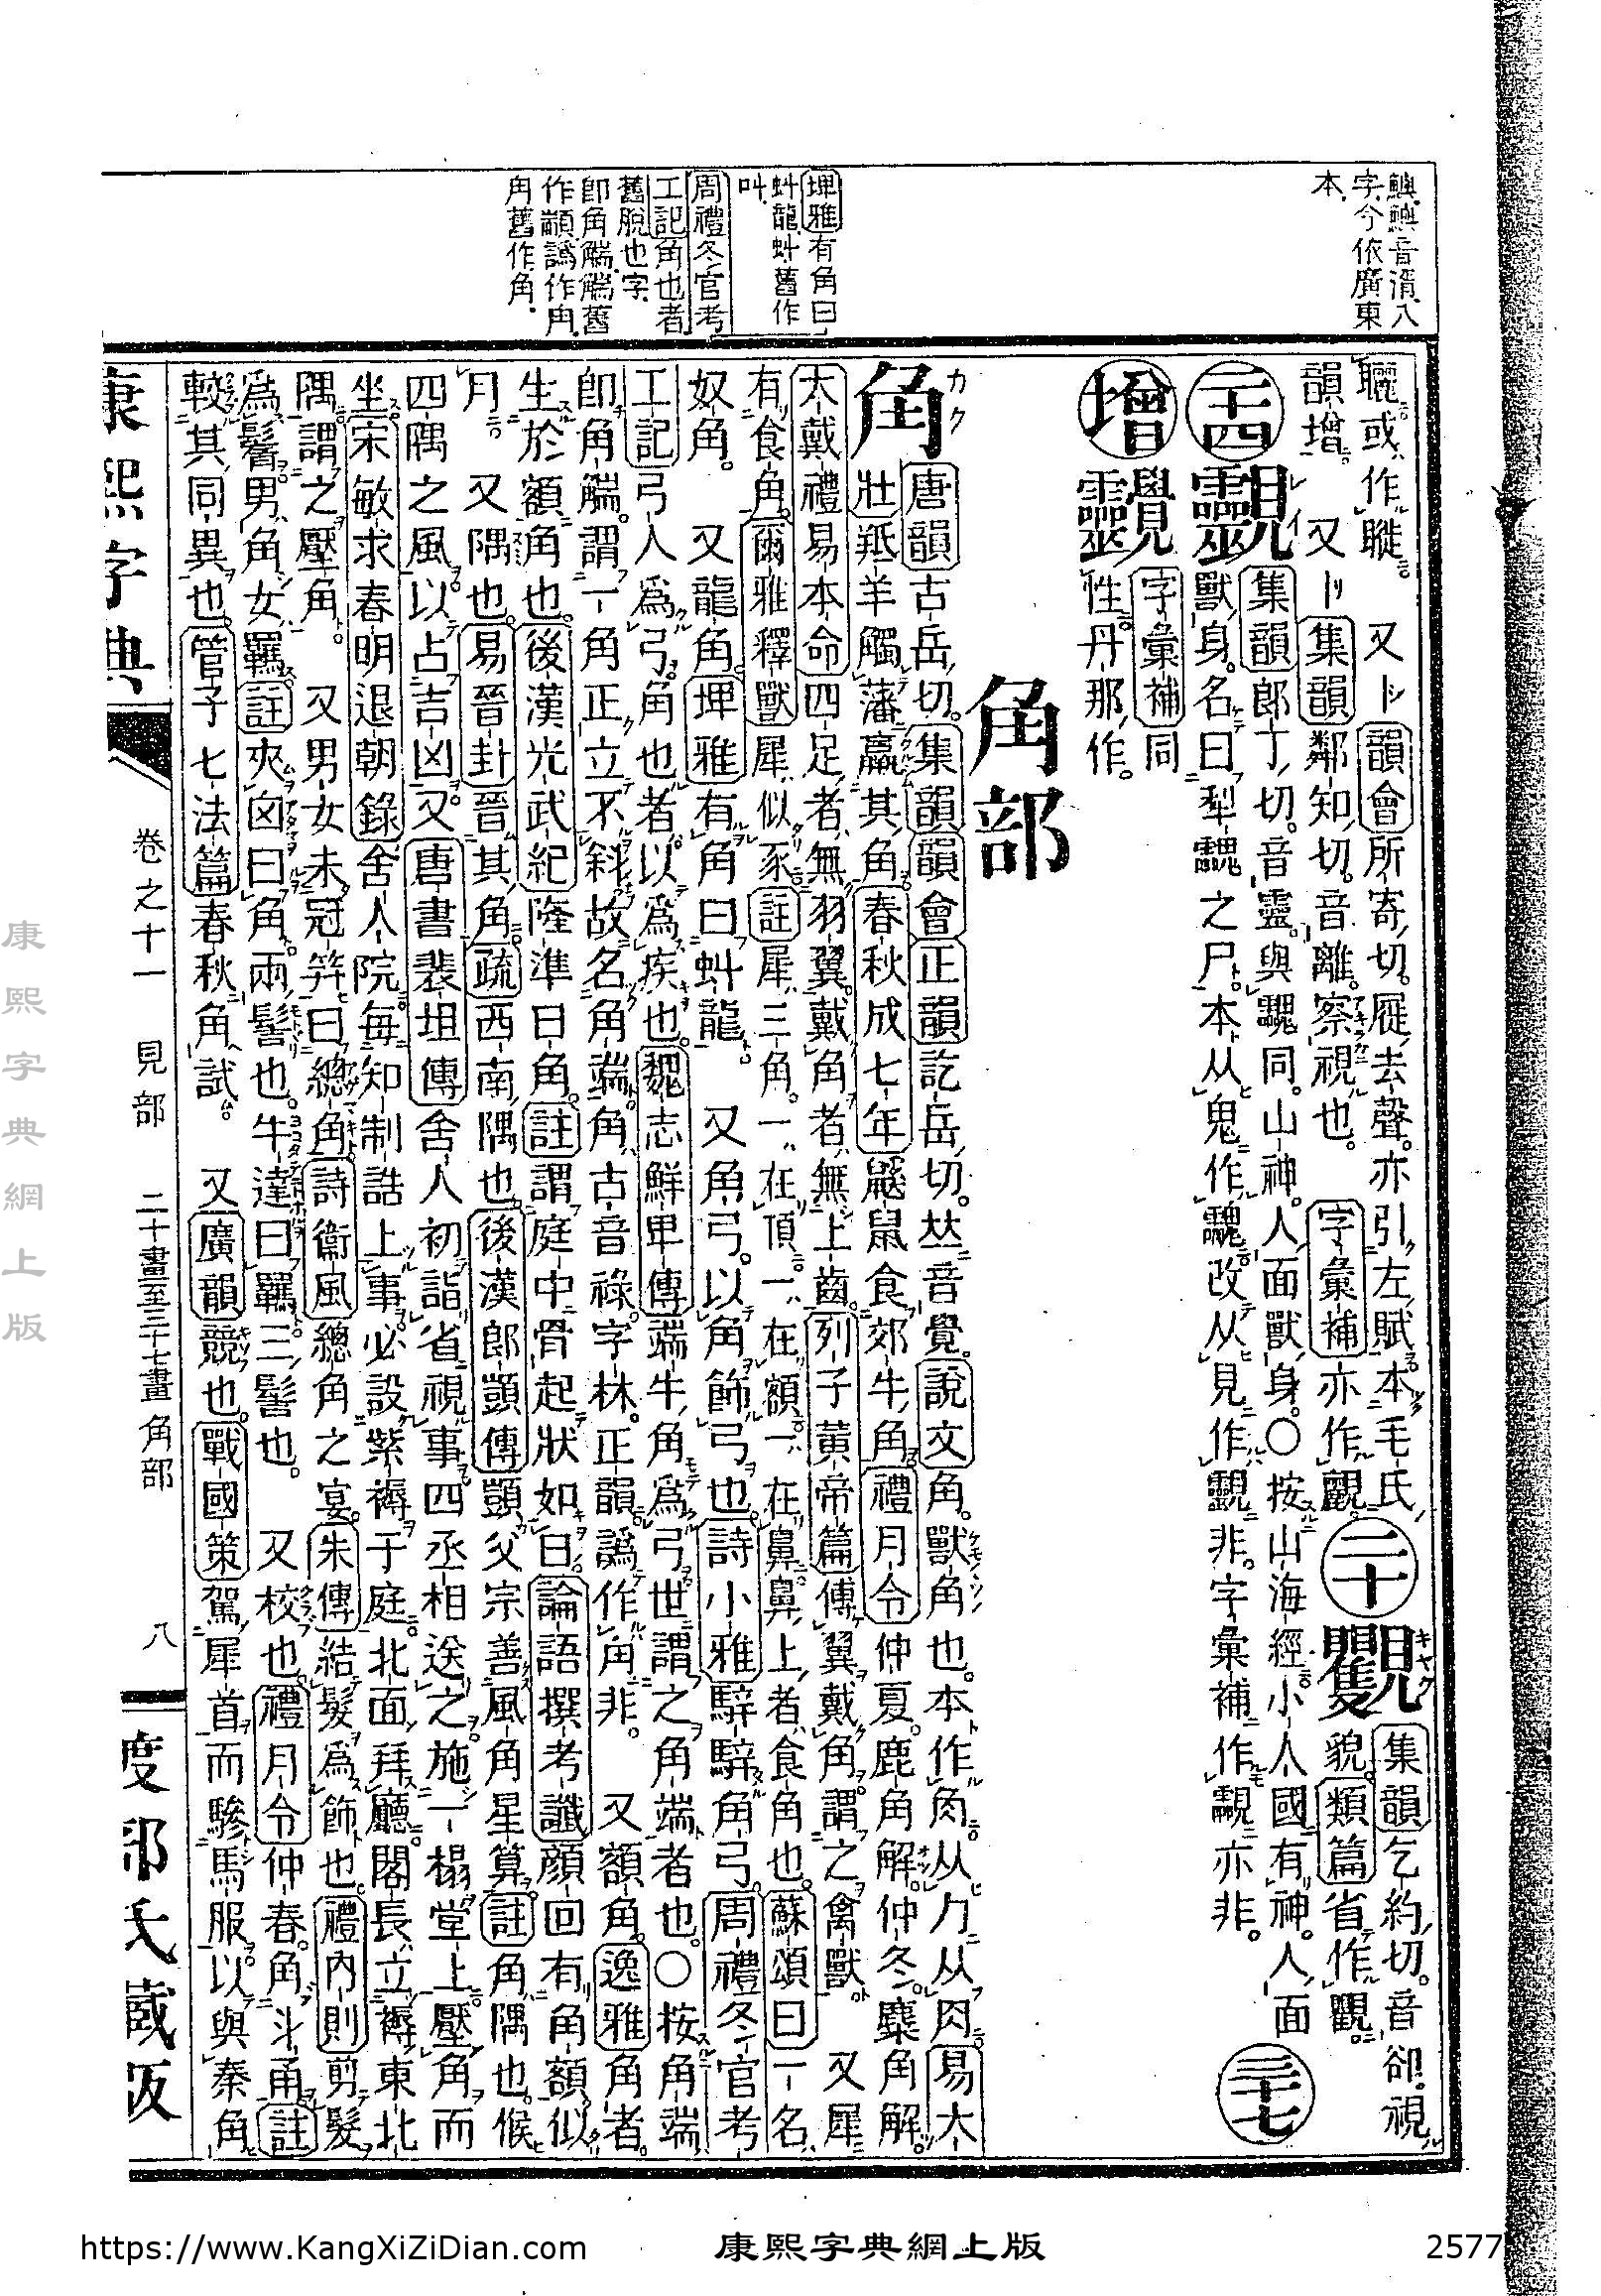 音湑八
字今依廣東
本
埤雅有角曰
虯龍虯舊作
叫
周禮冬官考
工記角也者
舊脫也字
卽角觿觿舊
作顓譌作甪
角舊作角
矖或作䁟。 又卜韻會所寄切。屣去聲。亦引左賦本毛氏
韻增。 又卜集韻鄰知切。音離。察視也。 字彙補亦作
二十
キャク
集韻乞約切。音卻。視
貌。類篇省作
二十四
集韻郎丁切。音靈。與同。山神。人面獸身。○按山海經小人國有神。人面
獸身。名曰犁之尸。本从鬼作。改从見作非。字彙補作亦非。
增
字彙補同
性丹那作。
三十七
角部
角
カク
唐韻古岳切。集韻韻會正韻訖岳切。𠀤音覺。說文角。獸角也。本作𧢲从力从肉。易大
壯羝羊觸藩羸其角。春秋成七年鼷鼠食郊牛角。禮月令仲夏。鹿角解。仲冬。麋角解。
大戴禮易本命四足者無羽翼戴角者無上齒。列子黃帝篇傅翼戴角。謂之禽獸。 又犀
有食角。爾雅釋獸犀似豕註犀三角。一在頂。一在額。一在鼻。鼻上者食角也。蘇頌曰一名
奴角。 又龍角。埤雅有角曰虯龍。 又角弓。以角飾弓也。詩小雅騂騂角弓。周禮冬官考
工記弓人爲弓。角也者。以爲疾也。魏志鮮卑傳端牛角爲弓。世謂之角端者也。○按角端
卽角觿。謂一角正立不斜。故名角端。角古音祿。字林。正韻譌作甪非。 又額角。逸雅角者。
生於額角也。後漢光武紀隆準日角。註謂庭中骨起狀如日。論語撰考讖顏回有角額似
月。 又隅也。易晉卦晉其角。疏西南隅也。後漢郎顗傳顗父宗善風角星算。註角隅也。候
四隅之風。以占吉凶。又唐書裴坦傳舍人初詣省視事四丞相送之。施一榻堂上壓角而
坐宋敏求春明退朝錄舍人院每知制誥上事必設紫褥于庭。北面拜廳。閣長立褥東北
隅謂之壓角。 又男女未冠笄曰總角。詩衞風總角之宴。朱傳結髮爲飾也。禮內則剪髮
爲鬌男角女羈。註夾囟曰角。兩髻也。牛達曰羈。三髻也。 又校也。禮月令仲春。角斗甬。註
較其同異也。管子七法篇春秋角試。 又廣韻競也。戰國策駕犀首而驂馬服。以與秦角
康熙字典
卷之十一 見部 二十畫至三十七畫 角部 八
度部氏藏版
康熙字典網上版
https://www.KangXiZiDian.com
康熙字典網上版
2577